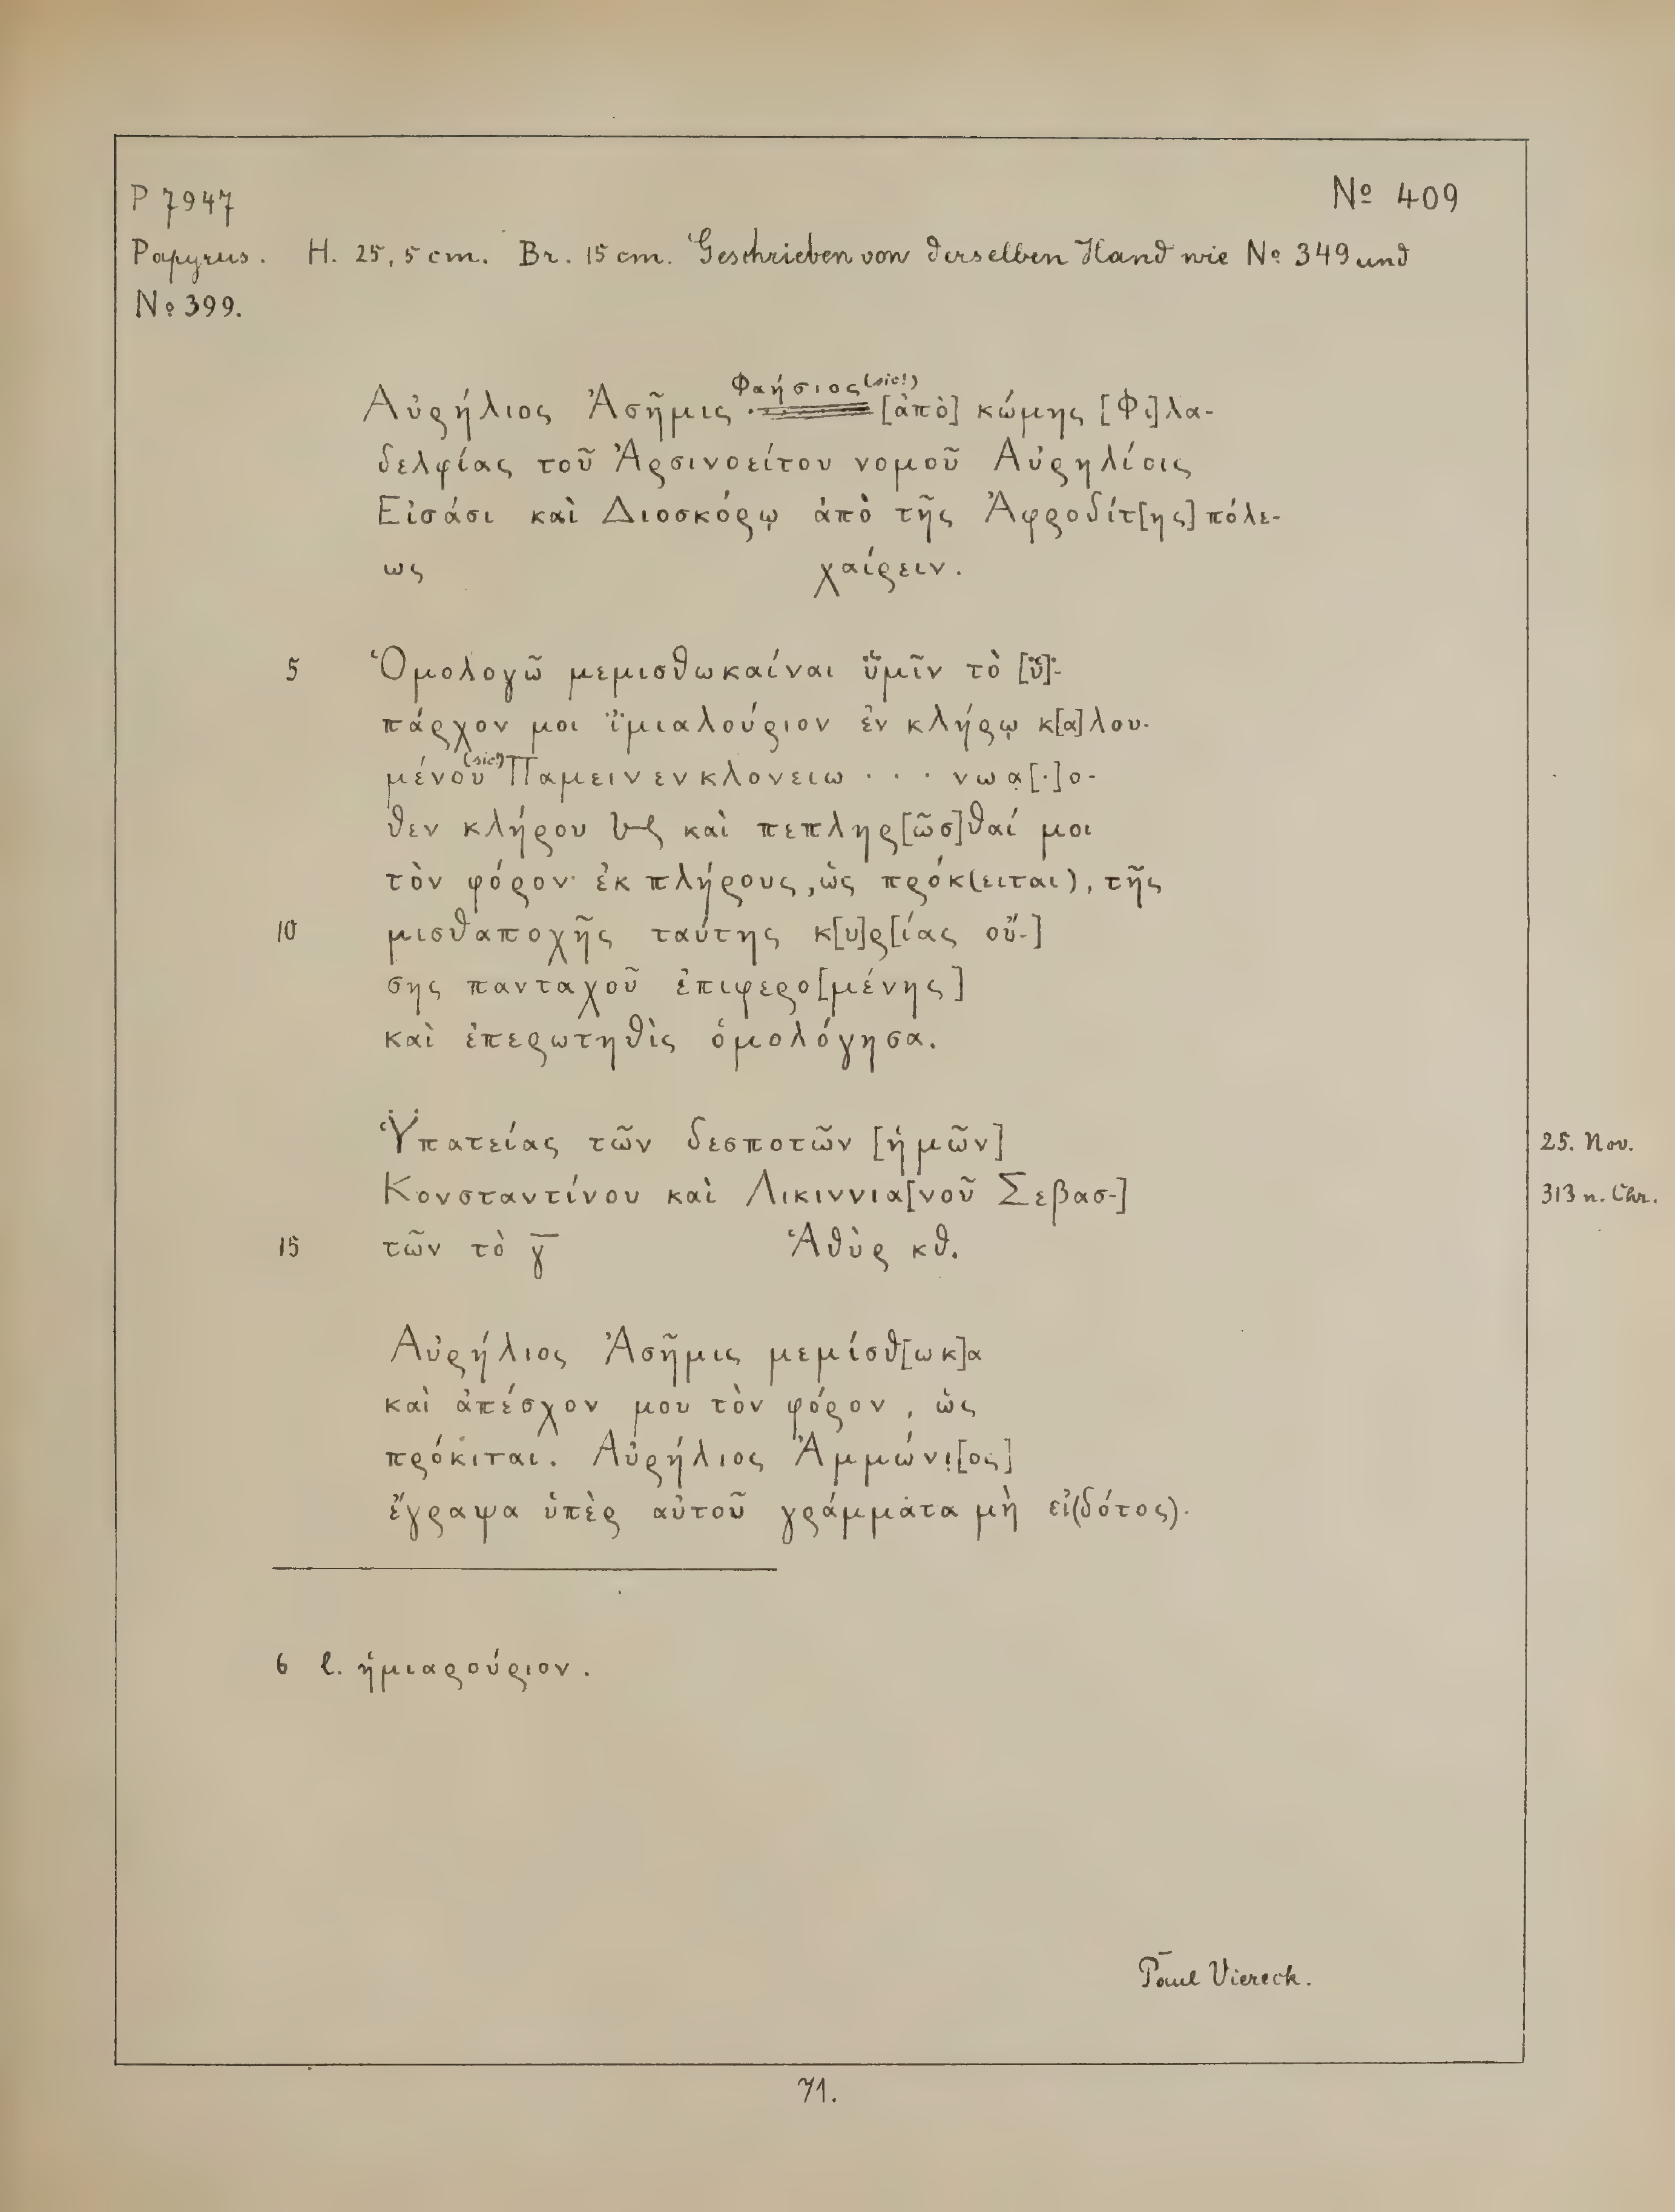 P 7947
Nº 409
Papyrus. H. 25,5 cm. Br. 15 cm. Geschrieben von derselben Hand wie Nº 349 und
Nº 399.
Φαήσιος (sic!)
Αὐρήλιος Ἀσῆμις [ἀπὸ] κώμης [Φι]λα-
δελφίας τοῦ Ἀρσινοείτου νομοῦ Αὐρηλίοις
Εἰσάσι καὶ Διοσκόρῳ ἀπὸ τῆς Ἀφροδίτ[ης] πόλε-
ως χαίρειν.
5 Ὁμολογῶ μεμισθωκαίναι ὑ̈μῖν τὸ [ὑ̈]-
πάρχον μοι ἵ̈μιαλούριον ἐν κλήρῳ κ[α]λου-
μένου (sic!) Παμεινενκλονειω . . . νωα̣[.]ο-
θεν κλήρου καὶ πεπληρ[ῶσ]θαί μοι
τὸν φόρον ἐκ πλήρους, ὡς πρόκ(ειται), τῆς
10 μισθαποχῆς ταύτης κ[υ]ρ[ίας οὔ-]
σης πανταχοῦ ἐπιφερο[μένης]
καὶ ἐπερωτηθὶς ὁμολόγησα.
Ὑ̈πατείας τῶν δεσποτῶν [ἡμῶν] 25. Nov.
Κονσταντίνου καὶ Λικιννια[νοῦ Σεβασ-] 313 n. Chr.
15 τῶν τὸ γ̅ Ἁθὺρ κθ.
Αὐρήλιος Ἀσῆμις μεμίσθ[ωκ]α
καὶ ἀπέσχον μου τὸν φόρον, ὡς
πρόκιται. Αὐρήλιος Ἀμμώνι̣[ος]
ἔγραψα ὑπὲρ αὐτοῦ γράμματα μὴ εἰ(δότος).
6 l. ἡμιαρούριον.
Paul Viereck.
71.